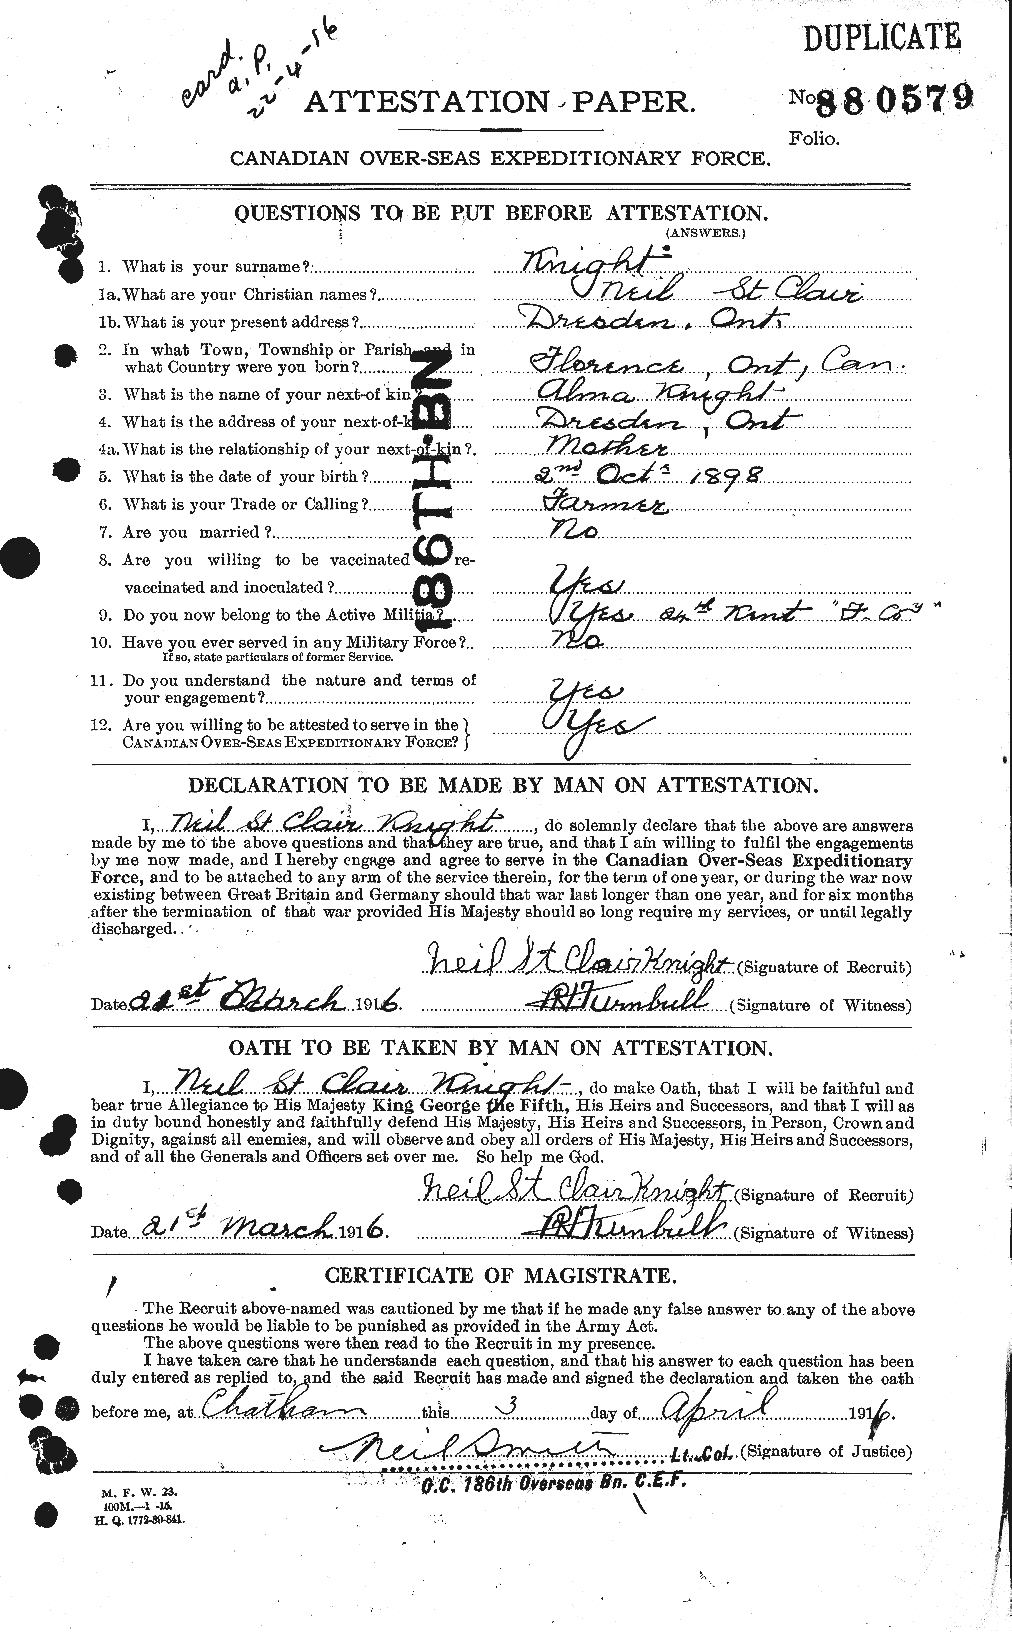 card.
a.P.
22-4-16
DUPLICATE
ATTESTATION PAPER.
No 880579
Folio.
CANADIAN OVER-SEAS EXPEDITIONARY FORCE.
QUESTIONS TO BE PUT BEFORE ATTESTATION.
(ANSWERS.)
1. What is your surname? Knight
1a. What are your Christian names? Neil St Clair
1b. What is your present address? Dresden, Ont.
2. In what Town, Township or Parish, and in
what Country were you born? Florence, Ont, Can.
3. What is the name of your next-of kin? Alma Knight
4. What is the address of your next-of-kin? Dresden, Ont
4a. What is the relationship of your next-of-kin? Mother
5. What is the date of your birth? 2nd Oct 1898
6. What is your Trade or Calling? Farmer
7. Are you married? No
8. Are you willing to be vaccinated re-
vaccinated and inoculated? Yes
9. Do you now belong to the Active Militia? Yes 24th Kent "F. Coy"
10. Have you ever served in any Military Force? No
If so, state particulars of former Service.
11. Do you understand the nature and terms of
your engagement? Yes
12. Are you willing to be attested to serve in the } Yes
CANADIAN OVER-SEAS EXPEDITIONARY FORCE? }
186TH BN
DECLARATION TO BE MADE BY MAN ON ATTESTATION.
I, Neil St Clair Knight, do solemnly declare that the above are answers
made by me to the above questions and that they are true, and that I am willing to fulfil the engagements
by me now made, and I hereby engage and agree to serve in the Canadian Over-Seas Expeditionary
Force, and to be attached to any arm of the service therein, for the term of one year, or during the war now
existing between Great Britain and Germany should that war last longer than one year, and for six months
after the termination of that war provided His Majesty should so long require my services, or until legally
discharged.
Neil St Clair Knight (Signature of Recruit)
Date 21st March 1916. R H Turnbull (Signature of Witness)
OATH TO BE TAKEN BY MAN ON ATTESTATION.
I, Neil St Clair Knight, do make Oath, that I will be faithful and
bear true Allegiance to His Majesty King George the Fifth, His Heirs and Successors, and that I will as
in duty bound honestly and faithfully defend His Majesty, His Heirs and Successors, in Person, Crown and
Dignity, against all enemies, and will observe and obey all orders of His Majesty, His Heirs and Successors,
and of all the Generals and Officers set over me. So help me God.
Neil St Clair Knight (Signature of Recruit)
Date 21st March 1916. R H Turnbull (Signature of Witness)
CERTIFICATE OF MAGISTRATE.
The Recruit above-named was cautioned by me that if he made any false answer to any of the above
questions he would be liable to be punished as provided in the Army Act.
The above questions were then read to the Recruit in my presence.
I have taken care that he understands each question, and that his answer to each question has been
duly entered as replied to, and the said Recruit has made and signed the declaration and taken the oath
before me, at Chatham this 3 day of April 1916.
Neil Smith Lt. Col. (Signature of Justice)
O.C. 186th Overseas Bn. C.E.F.
M. F. W. 23.
100M.—1-16.
H. Q. 1772-39-841.